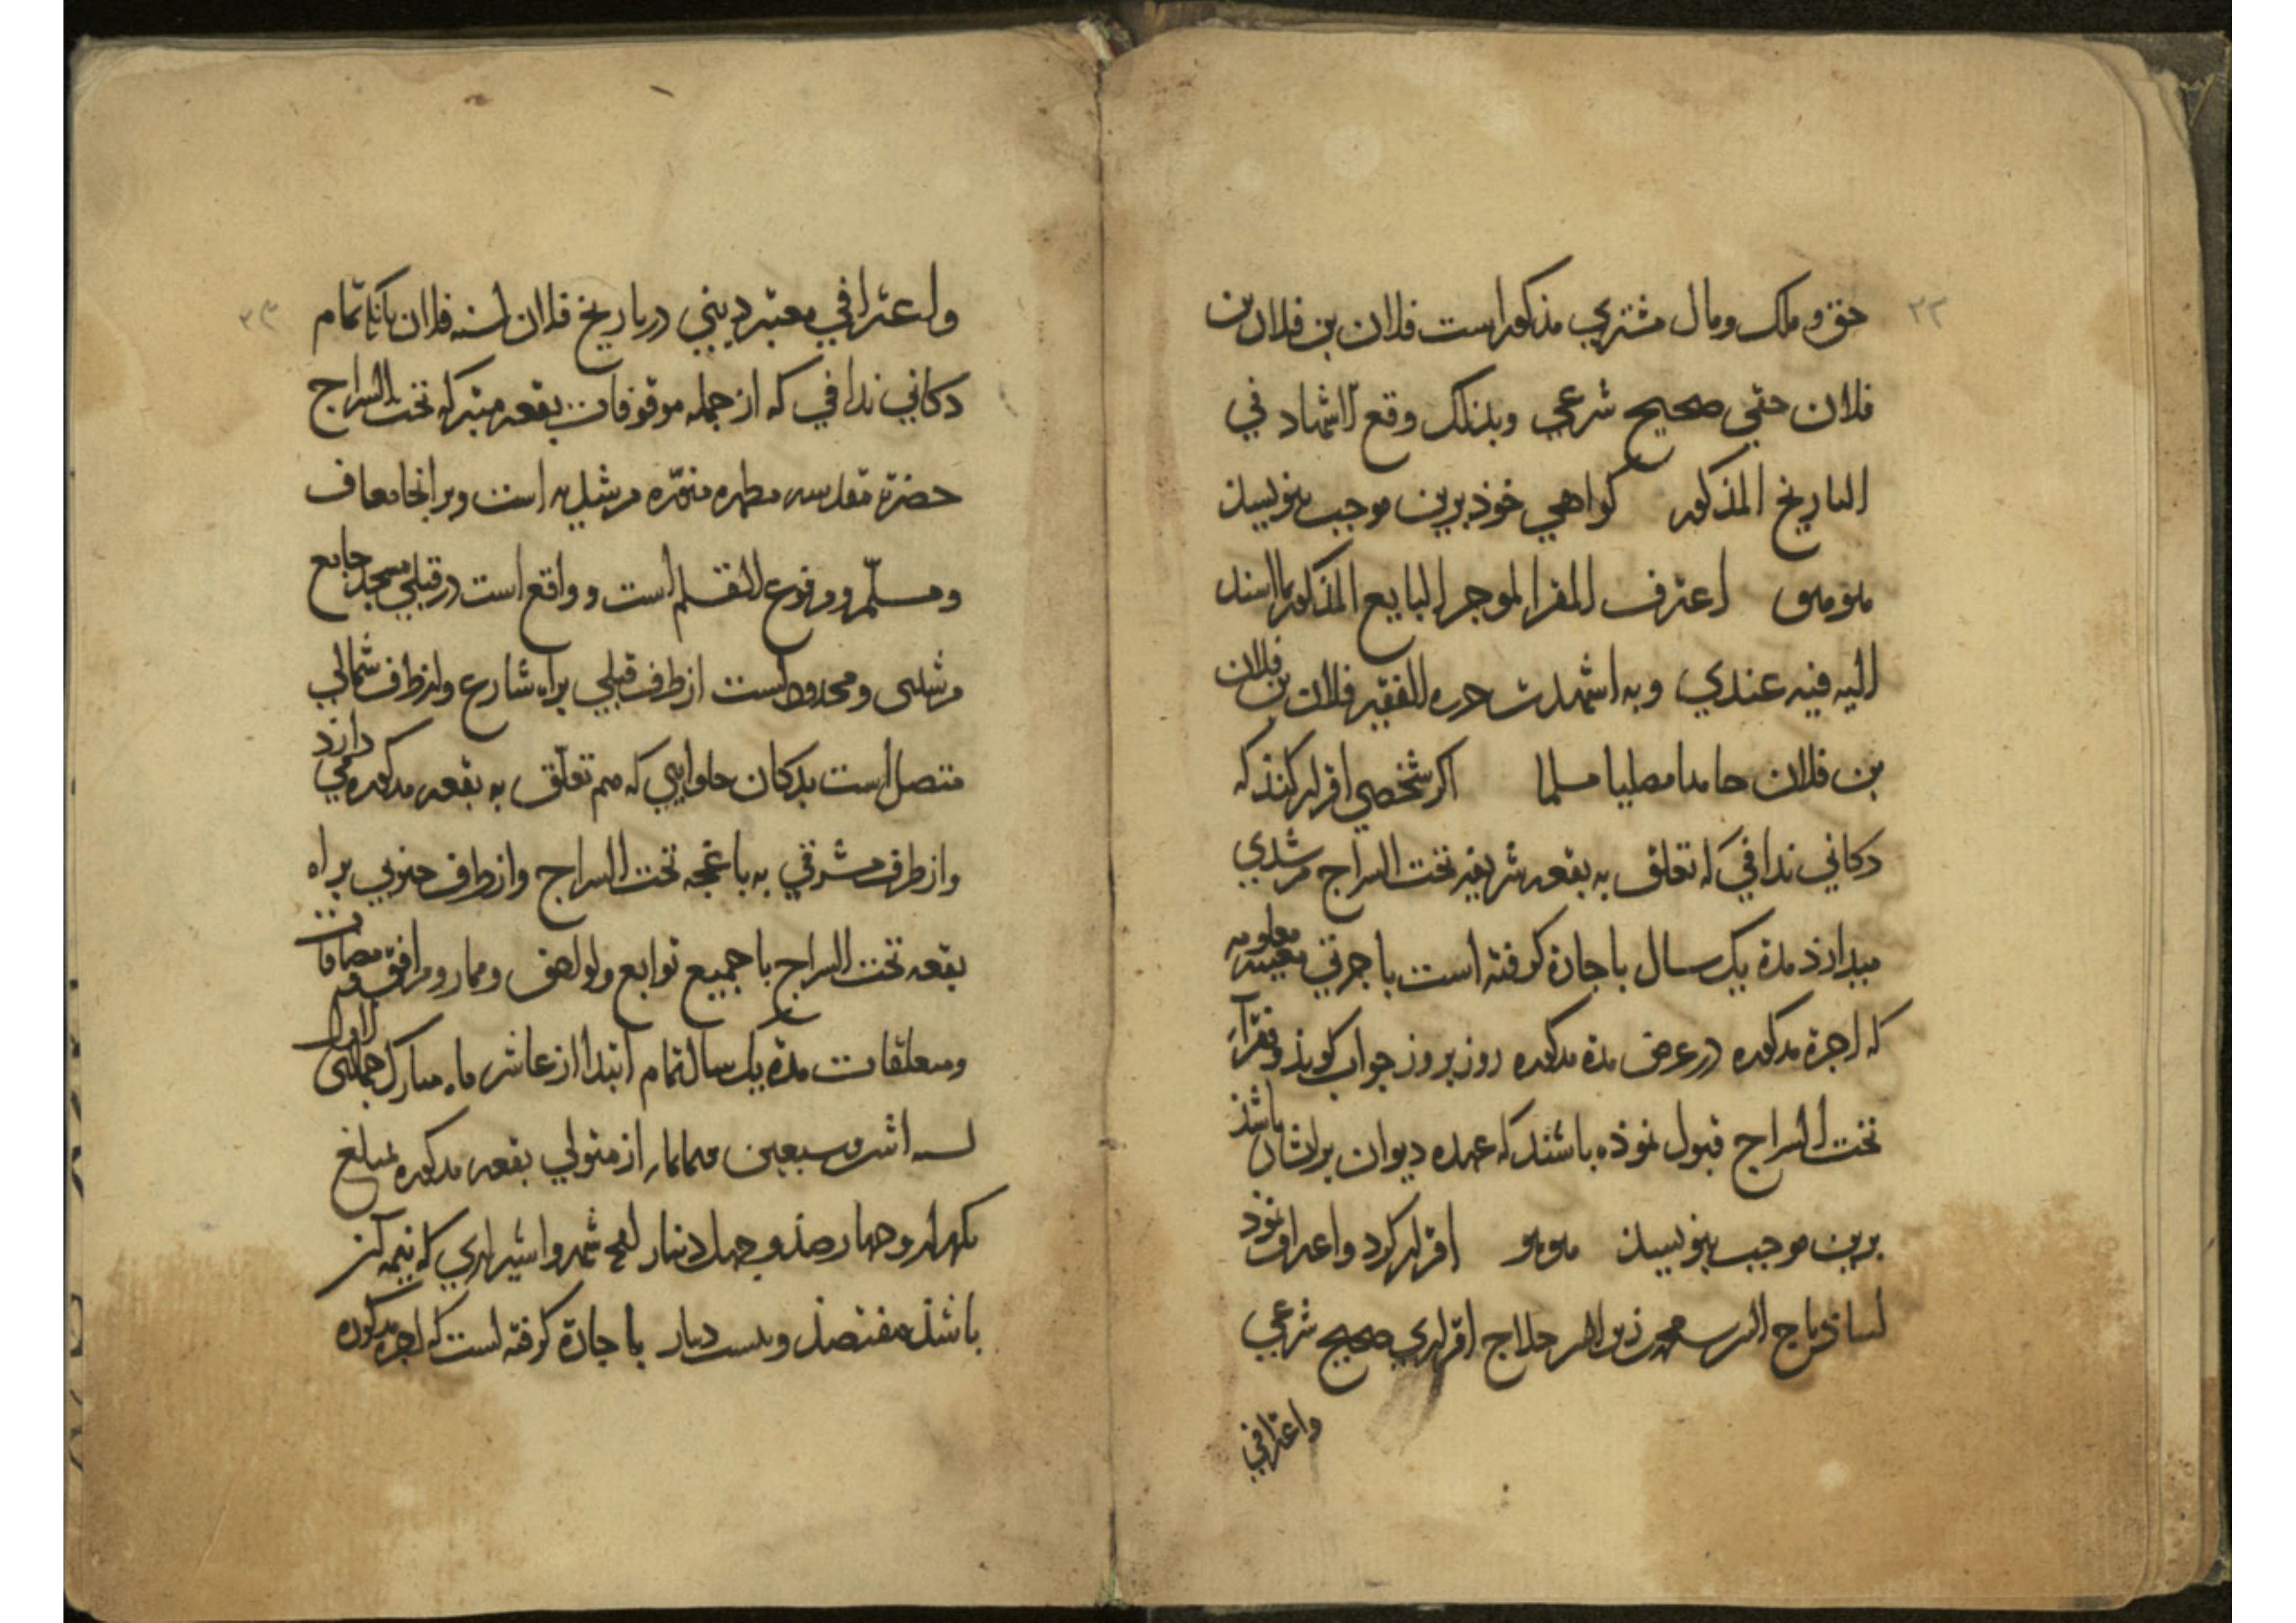 حق و ملک و مال مشتری مذکور است فلان بن فلان بن
فلان حقی صحیح شرعی وبذلک وقع الاشهاد فی
التاریخ المذکور کواهی خوذ برین موجب بنویسند
اعترف المقر الموجر البایع المذکور بما اسند
الیه فیه عندی وبه اشهدت حرره الفقیر فلان بن فلان
بن فلان حامدا مصلیا مسلما اکر شخصی اقرار کنذ که
دکانی ندافی که تعلق به بقعه شریفه تخت السراج مرشدی
میدارذ مدة یک سال باجارة کرفته است باجرتی معینه معلومه
که اجرة مذکوره در عرض مدة مذکوره روز بروز جواب کویذ و فقراء
تخت السراج قبول نموذه باشند که عهده دیوان بر ایشان باشذ
برین موجب بنویسند اقرار کرد و اعتراف نموذ
تاج الدین محمد بن حلاج اقراری صحیح شرعی
واعترافی
۳۳
واعترافی معتبر دینی در تاریخ فلان لسنه فلان بانک تمام
دکانی ندافی که از جمله موقوفات بقعه متبرکه تخت السراج
حضرة مقدسه مطهره منوّره مرشدیه است وبرانجا معاف
ومسلّم ومرفوع القلم است و واقع است در قبلی مسجد جامع
مرشدی ومحدود است از طرف قبلی براه شارع واز طرف شمالی
متصل است بدکان حلوایی که هم تعلّق به بقعه مذکوره می دارذ
واز طرف مشرقی به باغچه تخت السراج واز طرف جنوبی براه
بقعه تخت السراج با جمیع توابع ولواحق وممار ومرافق ومضافات
ومتعلقات مدة یک سال تمام ابتدا از عاشر ماه مبارک جمادی الاول
لسنه اثنی وسبعین وثمانمایه از متولی بقعه مذکوره بمبلغ
یکهزار وچهارصذ وچهل دینار شیرازی که نیمه آن
باشذ هفتصذ وبیست دینار باجارة کرفته است که اجرة مذکوره
۳۴